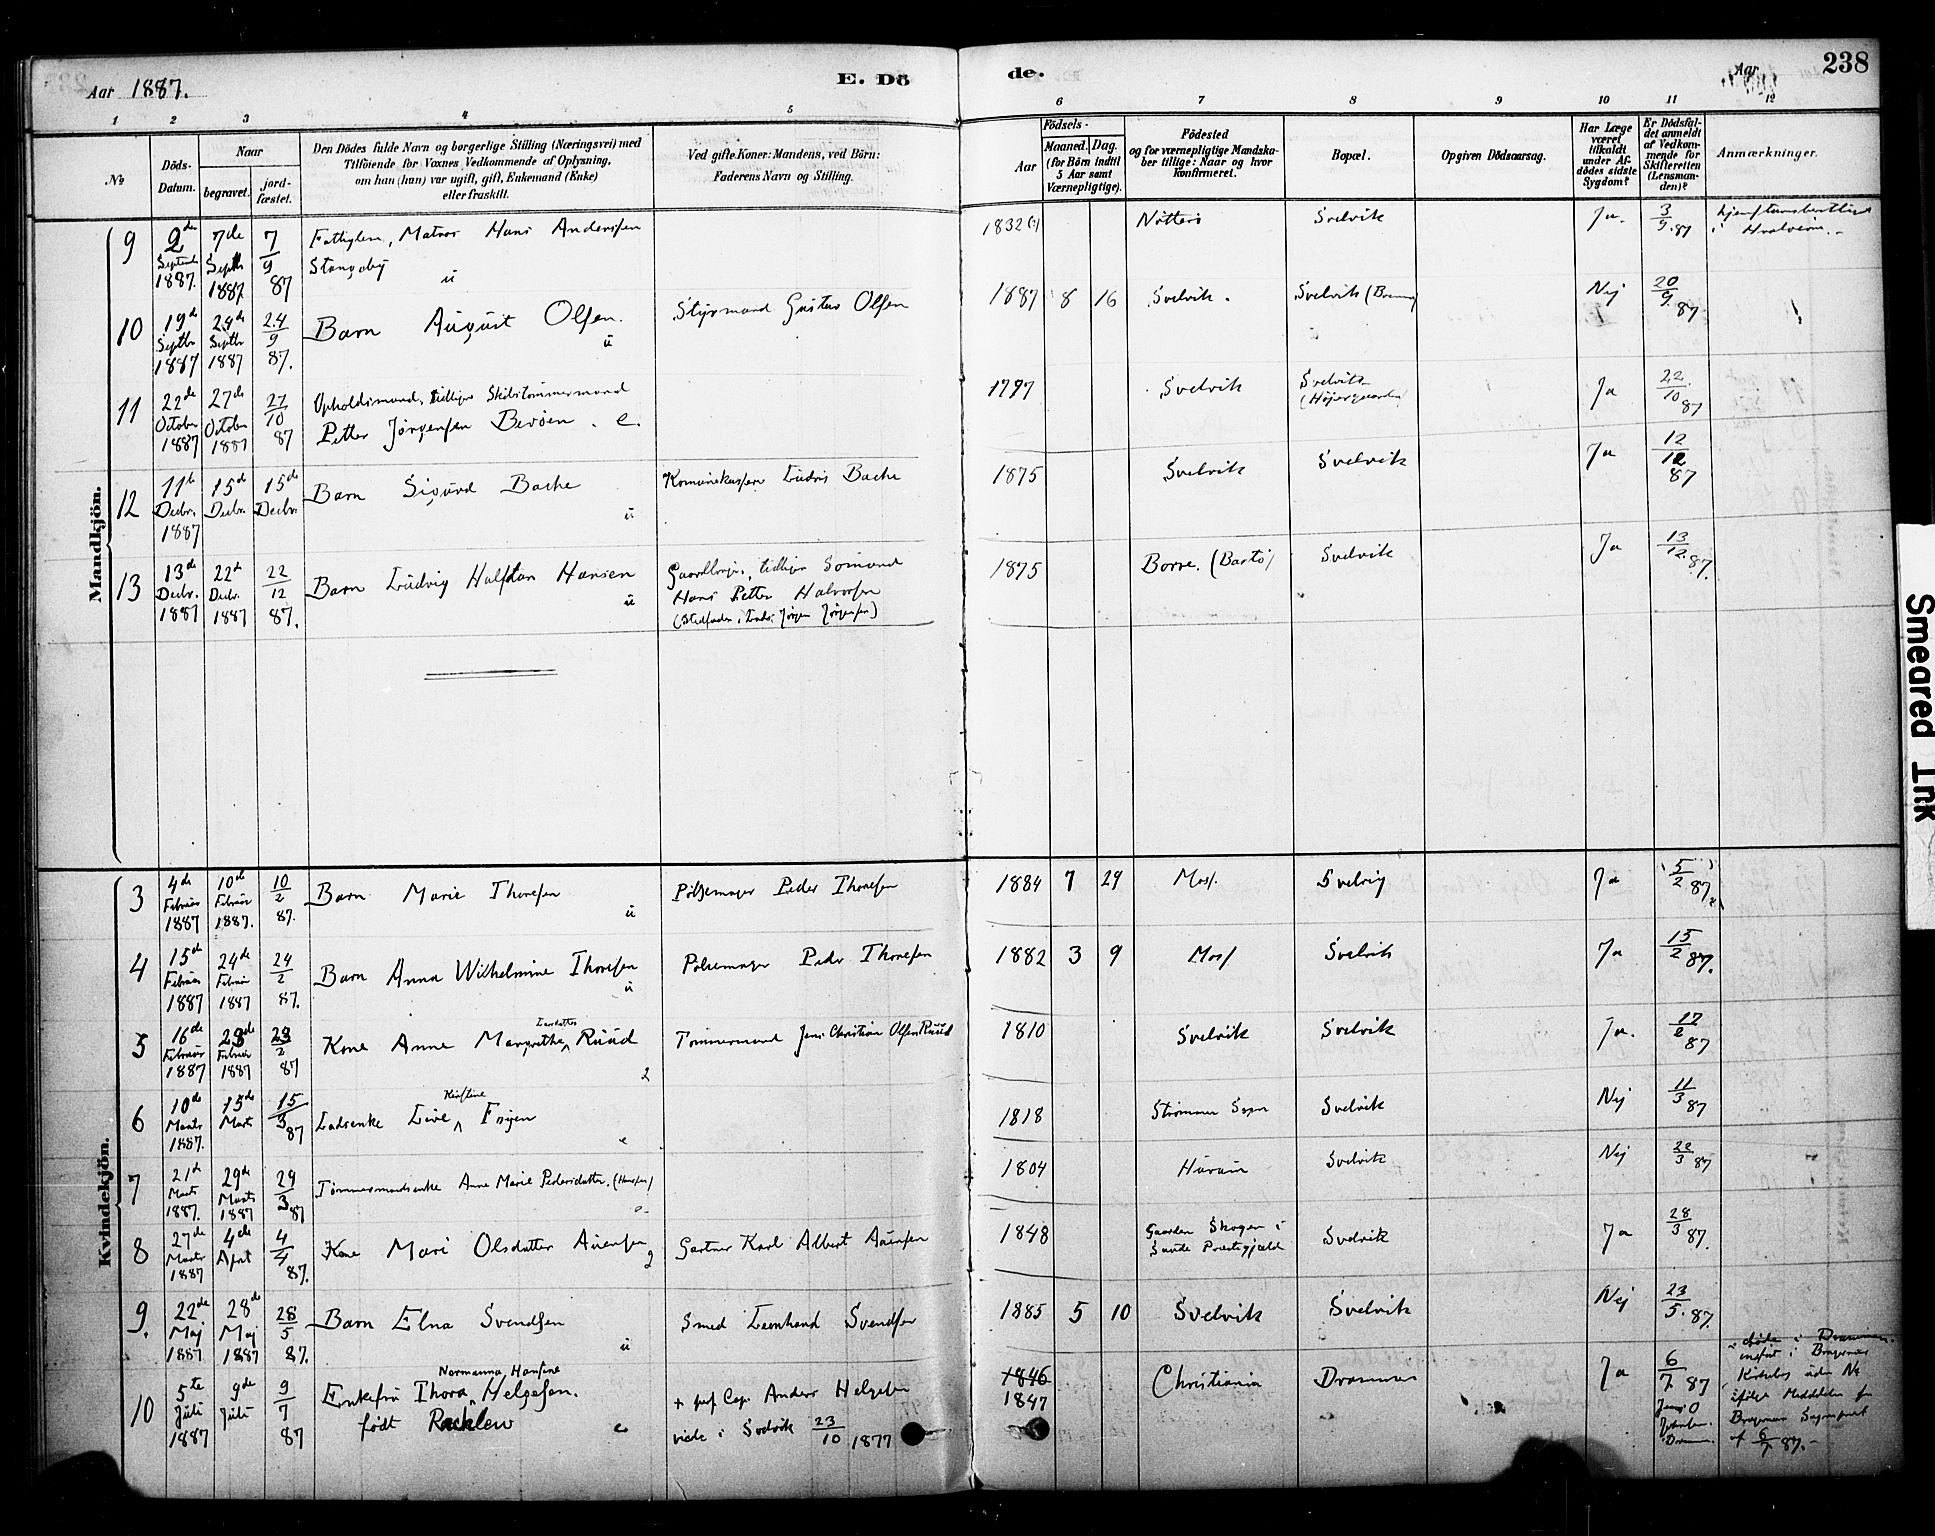 Aar 1887.
E. Dö
de.
Aar
238
1 2 3 4 5 6 7 8 9 10 11 12
No.
Döds-Datum.
Naar
begravet.
jord-fæstet.
Den Dödes fulde Navn og borgerlige Stilling (Næringsvei) med
Tilföiende for Voxnes Vedkommende af Oplysning,
om han (hun) var ugift, gift, Enkemand (Enke)
eller fraskilt.
Ved gifte Koner: Mandens, ved Börn:
Faderens Navn og Stilling.
Födsels-
Aar
Maaned. Dag.
(for Börn indtil
5 Aar samt
Værnepligtige).
Födested
og for værnepligtige Mandska-
ber tillige: Naar og hvor
Konfirmeret.
Bopæl.
Opgiven Dödsaarsag.
Har Læge
været
tilkaldt
under Af-
dödes sidste
Sygdom?
Er Dödsfal-
det anmeldt
af Vedkom-
mende for
Skifteretten
(Lensman-
den)?
Anmærkninger.
Mandkjön.
9 2den Septemb 1887. 7de Septb 1887 7/9 87 Matros Hans Andersen u 1832 Svelvik Ja. 3/9 87
10 19de Septbr 1887 24de Septbr 1887 24/9 87. Barn August Olsen. u Styrmand Gustav Olsen 1887 8 16 Svelvik. Svelvik Nej 20/9 87
11 22de October 1887 27de October 1887 27/10 87 Opholdsmand, tidligere Skibstømmermand
Petter Jörgensen Bevöen. e. 1797 Svelvik Svelvik Ja 22/10 87
12 11te Decbr. 1887 15de Decbr. 15de Decbr. Barn Sigurd Bache u Ludvig Bache 1875 Svelvik Svelvik Ja 12/12 87
13 13de Decbr. 1887 22de Decbr. 1887 22/12 87. Barn Ludvig Halfdan Hansen u tidligere Sömand
Hans Petter Halvorsen
1875 Borre. (Bastö) Svelvik Ja 13/12 87.
Kvindekjön.
3 4de Februar 1887 10de Februar 1887. 10/2 87. Barn Marie Thoresen u Pölsemager Peder Thoresen 1884 7 29 Moss. Svelvig Ja 5/2 87
4 15de Februar 1887 24de Februar 1887 24/2 87. Barn Anna Wilhelmine Thoresen u Pölsemager Peder Thoresen 1882 3 9 Moss Svelvik Ja 15/2 87.
5 16de Februar 1887 23de Februar 1887 23/2 87 Kone Anne Margrethe Ruud Tömmermand Jens Christian Olsen Ruud 1810 Svelvik Svelvik Ja. 17/2 87
6 10de Marts 1887. 15de Marts 15/3 87 Kirstine e 1818 Strömmen Sogn Svelvik Nej 11/3 87
7 21de Marts 1887. 29de Marts 1887 29/3 87 Tömmermandsenke Anne Marie Pedersdatter. (Hansen) e 1804 Hurum Svelvik Nej 22/3 87
8 27de Marts 1887 4de April 4/4 87. Kone Mari Olsdatter g Gartner Karl Albert 1848 Gaarden Skogen i
Sande Præstegjæld Svelvik Ja 28/3 87.
9. 22de Maj 1887 28de Maj 1887 28/5 87. Barn Elna Svendsen u Smed Leonhard Svendsen 1885 5 10 Svelvik Svelvik Nej 23/5. 87.
10 5te Juli 1887 9de Juli 9/7 87 Normanna Hansine
Enkefru Thora Helgesen.
födt e Anders Helgesen
viede i Svelvik 23/10 1877 1846 1847 Christiania Drammen Ja 6/7 87
död i Drammen.
af 6/7 87.
Smeared Ink